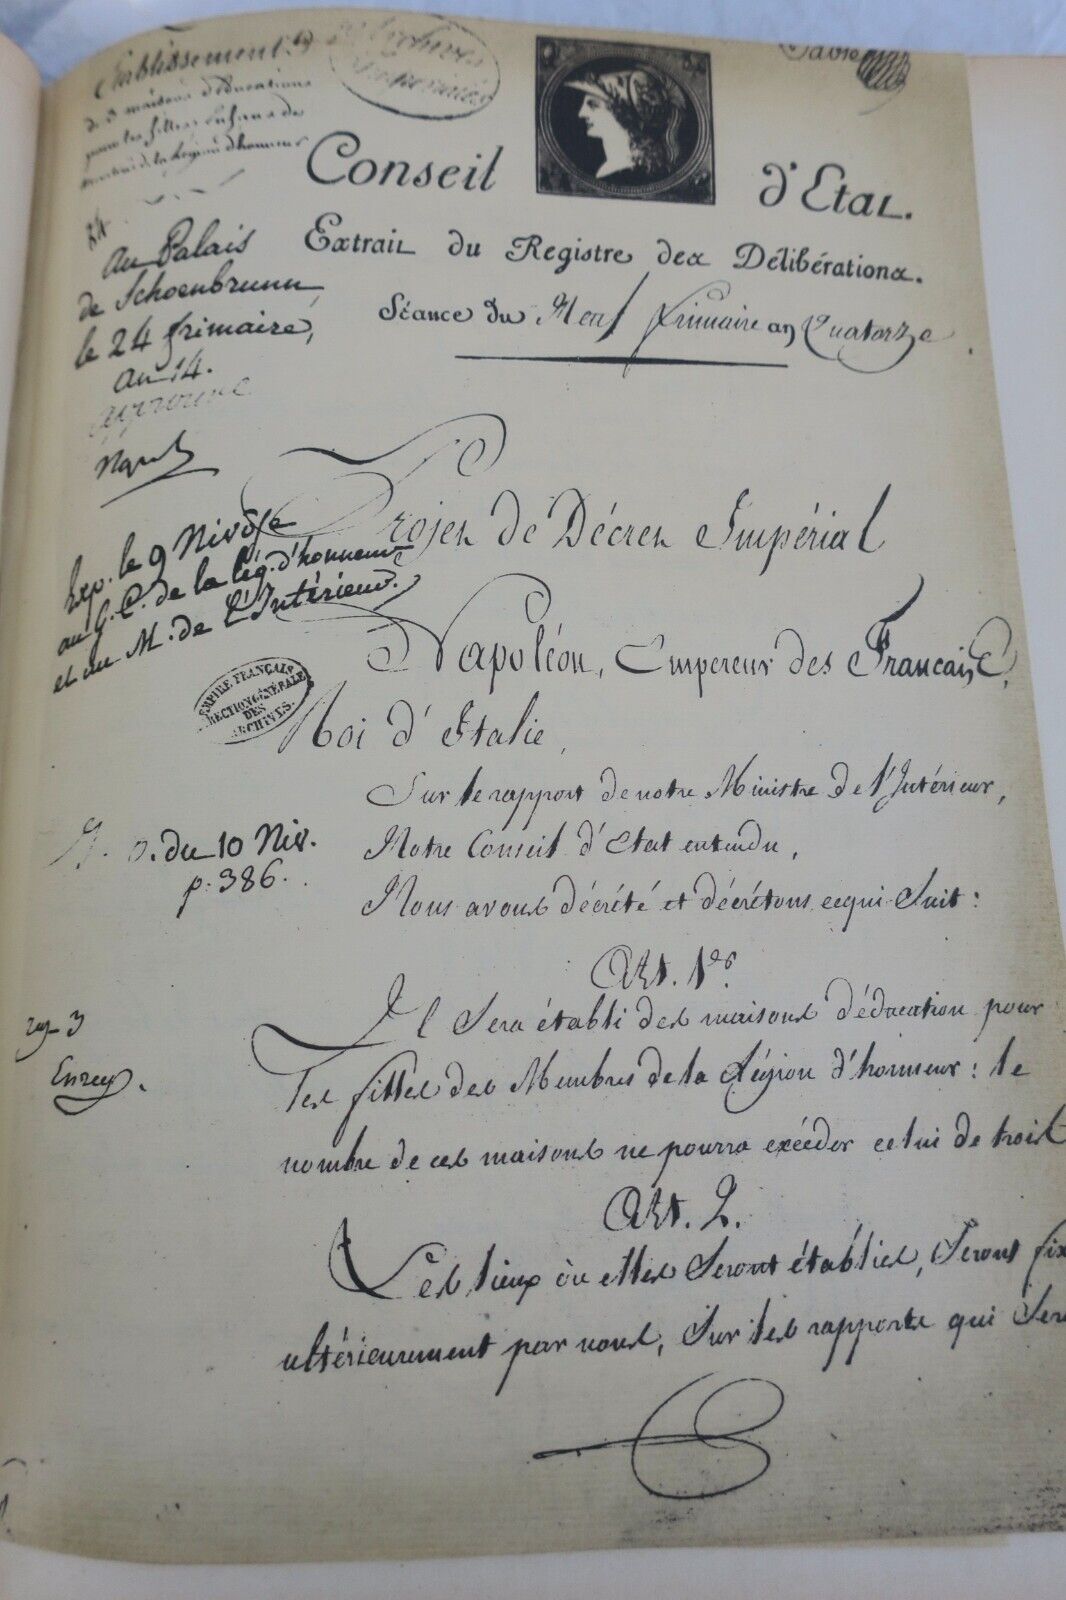 Etablissement
de 3 maisons d'éducation
pour les filles enfans de
membres de la Légion d'honneur
Archives
Impériales
Conseil d'Etat.
Extrait du Registre des Délibérations.
Séance du Neuf frimaire an Quatorze
84
au Palais
de Schoenbrunn,
le 24 frimaire,
an 14.
approuvé
Nap
Exp. le 9 Nivôse
au G. C. de la lég. d'honneur
et au M. de l'Intérieur.
EMPIRE FRANÇAIS
DIRECTION GÉNÉRALE
DES
ARCHIVES.
Projet de Décret Impérial
Napoléon, Empereur des Français,
Roi d'Italie,
Sur le rapport de notre Ministre de l'Intérieur,
Notre Conseil d'Etat entendu,
Nous avons décrété et décrétons ce qui Suit:
du 10 Niv.
p. 386.
Art. 1er.
Il Sera établi des maisons d'éducation pour
les filles des Membres de la Légion d'honneur: le
nombre de ces maisons ne pourra excéder celui de trois
3
Enreg.
Art. 2.
Les lieux où elles Seront établies, Seront fix
ultérieurement par nous, Sur les rapports qui Sero